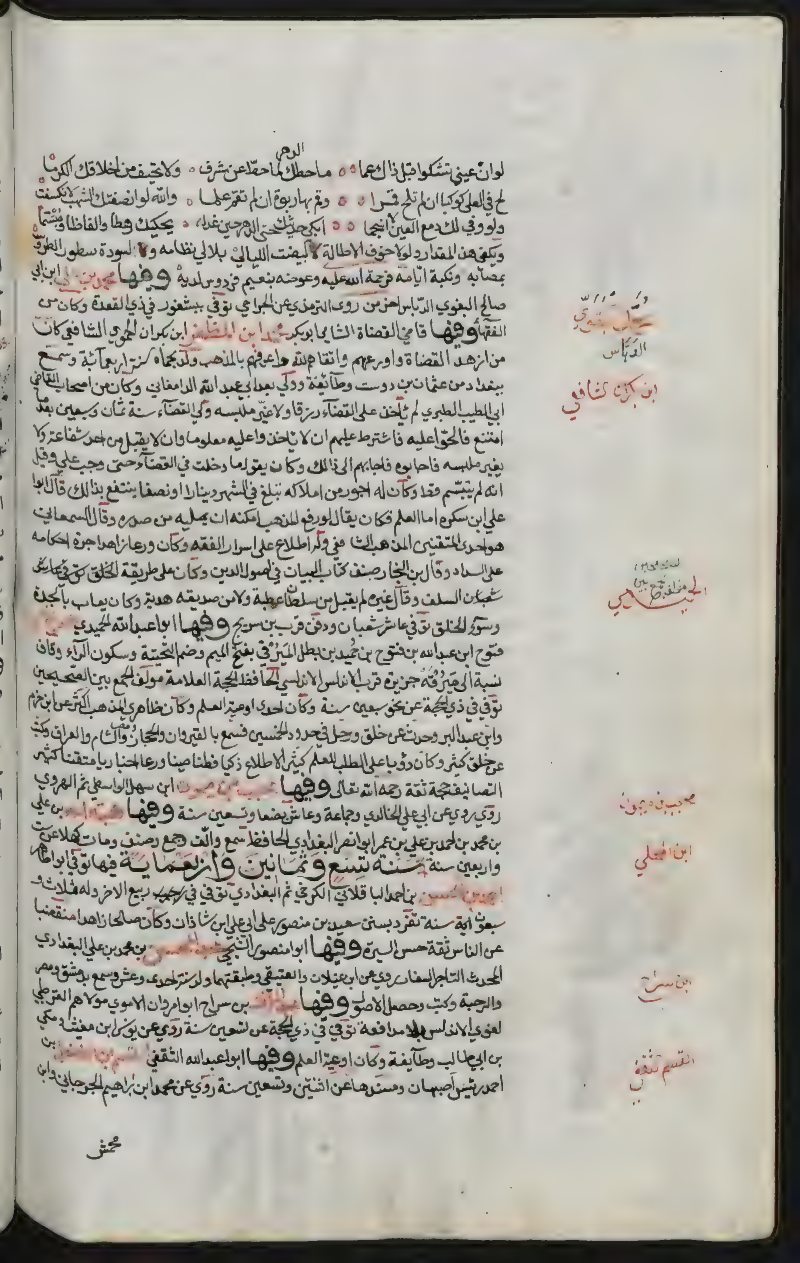 الدهر
لو ان عيني تشكوا قبل ذاك عما ما حطك لما حطا عن شرف ولا تحيف من اخلاقك الكرما
لح في العلى كوكبا ان لم تلح قمرا وقم بها ربوة ان لم تقم علما والله لو انصفتك الشهب لانكسفت
ولو وفى لك دمع العين لانسجما ابكى حديثك حتى الدهر حين غدا يحكيك رهطا والفاظا
ويكفي هذا المقدار ولولا خوف الاطالة لابيضت الليالي بلالي نظامه ولا سودة سطور الطروس
بمصابه ونكبة ايامه فرحمة الله عليه وعوضه بنعيم فردوس لديه وفيها محمد بن علي ابن ابي
صالح البغوي الدباس اخر من روى الترمذي عن الجراحي توفي ببغشور في ذي القعدة وكان من
الفقها وفيها قاضي القضاة الشامي ابو بكر محمد ابن المظفر ابن بكران الحموي الشافعي كان
من ازهد القضاة واورعهم واتقاهم لله واعرفهم بالمذهب ولد بحماة سنة اربعمائة وسمع
ببغداد من عثمان بن دوست وطائفة وولي بعد ابي عبد الله الدامغاني وكان من اصحاب القاضي
ابي الطيب الطبري لم ياخذ على القضاء رزقا ولا غير ملبسه ولي القضاء سنة ثمان وسبعين بعد
امتنع فالحوا عليه فاشترط عليهم ان لا ياخذ عليه معلوما وان لا يقبل من احد شفاعة ولا
يغير ملبسه فاجابوه فاجابهم الى ذالك وكان يقول ما دخلت في القضاء حتى وجب علي وقيل
انه لم يتبسم قط وكان له اجور من املاكه تبلغ في الشهر دينارا ونصفا ينتفع بذالك قال ابوا
علي ابن سكره اما العلم فكان يقال لو رفع المذهب امكنه ان يمليه من صدره وقال السمعاني
هو احد المتقنين لمذهب الشافعي وله اطلاع على اسرار الفقه وكان ورعا زاهدا جرة احكامه
على السداد وقال بن النجار صنف كتاب البيان في اصول الدين وكان على طريقة السلف توفي عاشر
شعبان السلف وقال غيره لم يقبل من سلطان عطية ولا من صديقه هدية وكان يعاب بالحدة
وسوء الخلق توفي عاشر شعبان ودفن قرب بن سريج وفيها ابوا عبد الله الحميدي محمد بن
فتوح ابن عبد الله بن فتوح بن حميد بن بطل الميرقي بفتح الميم وضم التحتية وسكون الراء وقاف
نسبة الى ميرقة جزيرة قرب الاندلس الاندلسي الحافظ الحجة العلامة مولف الجمع بين الصحيحين
توفي في ذي الحجة عن نحو سبعين سنة وكان احد اوعية العلم وكان ظاهري المذهب اكثر عن ابن حزم
وابن عبد البر وحدث عن خلق ورحل في حدود الخمسين فسمع بالقيروان والحجاز ومصر والشام والعراق وكتب
عن خلق كثير وكان دؤبا على الطلب للعلم كثير الاطلاع ذكيا فطنا صينا ورعا اخباريا متقنا كثير
التصانيف حجة ثقة رحمه الله تعالى وفيها نجيب بن ميمون ابن سهل الواسطي ثم الهروي
روى عن ابي علي الخالدي وجماعة وعاش بضعا وتسعين سنة وفيها هبة الله بن علي
بن محمد بن احمد بن علي بن عمر ابوا نصر البغدادي الحافظ سمع والف وجمع وصنف ومات كهلا عن ست
واربعين سنة سنة تسع وثمانين واربعماية فيها توفي ابو طاهر
احمد بن الحسن بن احمد البا قلاني الكرخي ثم البغدادي توفي في رجب ربيع الاخر وله ثلاث و
سبعون اية سنة تفرد بسنن سعيد بن منصور على ابي علي ابن شاذان وكان صالحا زاهدا منقبضا
عن الناس ثقة حسن السيرة وفيها ابوا منصور الشيحي عبد المحسن بن محمد بن علي البغدادي
المحدث التاجر السفار روى عن ابن غيلان والعتيقي وطبقتهما ولد سنة احدى وعشرين وسمع بدمشق ومصر
والرحبة وكتب وحصل الاصول وفيها عبد الملك بن سراج ابوا مروان الاموي مولاهم القرطبي
لغوي الاندلس بلا مدافعة توفي في ذي الحجة عن تسعين سنة روى عن يونس ابن مغيث ومكي
بن ابي طالب وطايفة وكان اوعية العلم وفيها ابوا عبد الله الثقفي القسم بن الفضل بن
احمد رئيس اصبهان ومسندها عن اثنين وتسعين سنة روى عن محمد ابن ابراهيم الجرجاني وابن
محمش
الدباس
ابن بكران الشافعي
الحميدي
نجيب بن ميمون
ابن المجلي
ابن سراج
القسم ثقفي